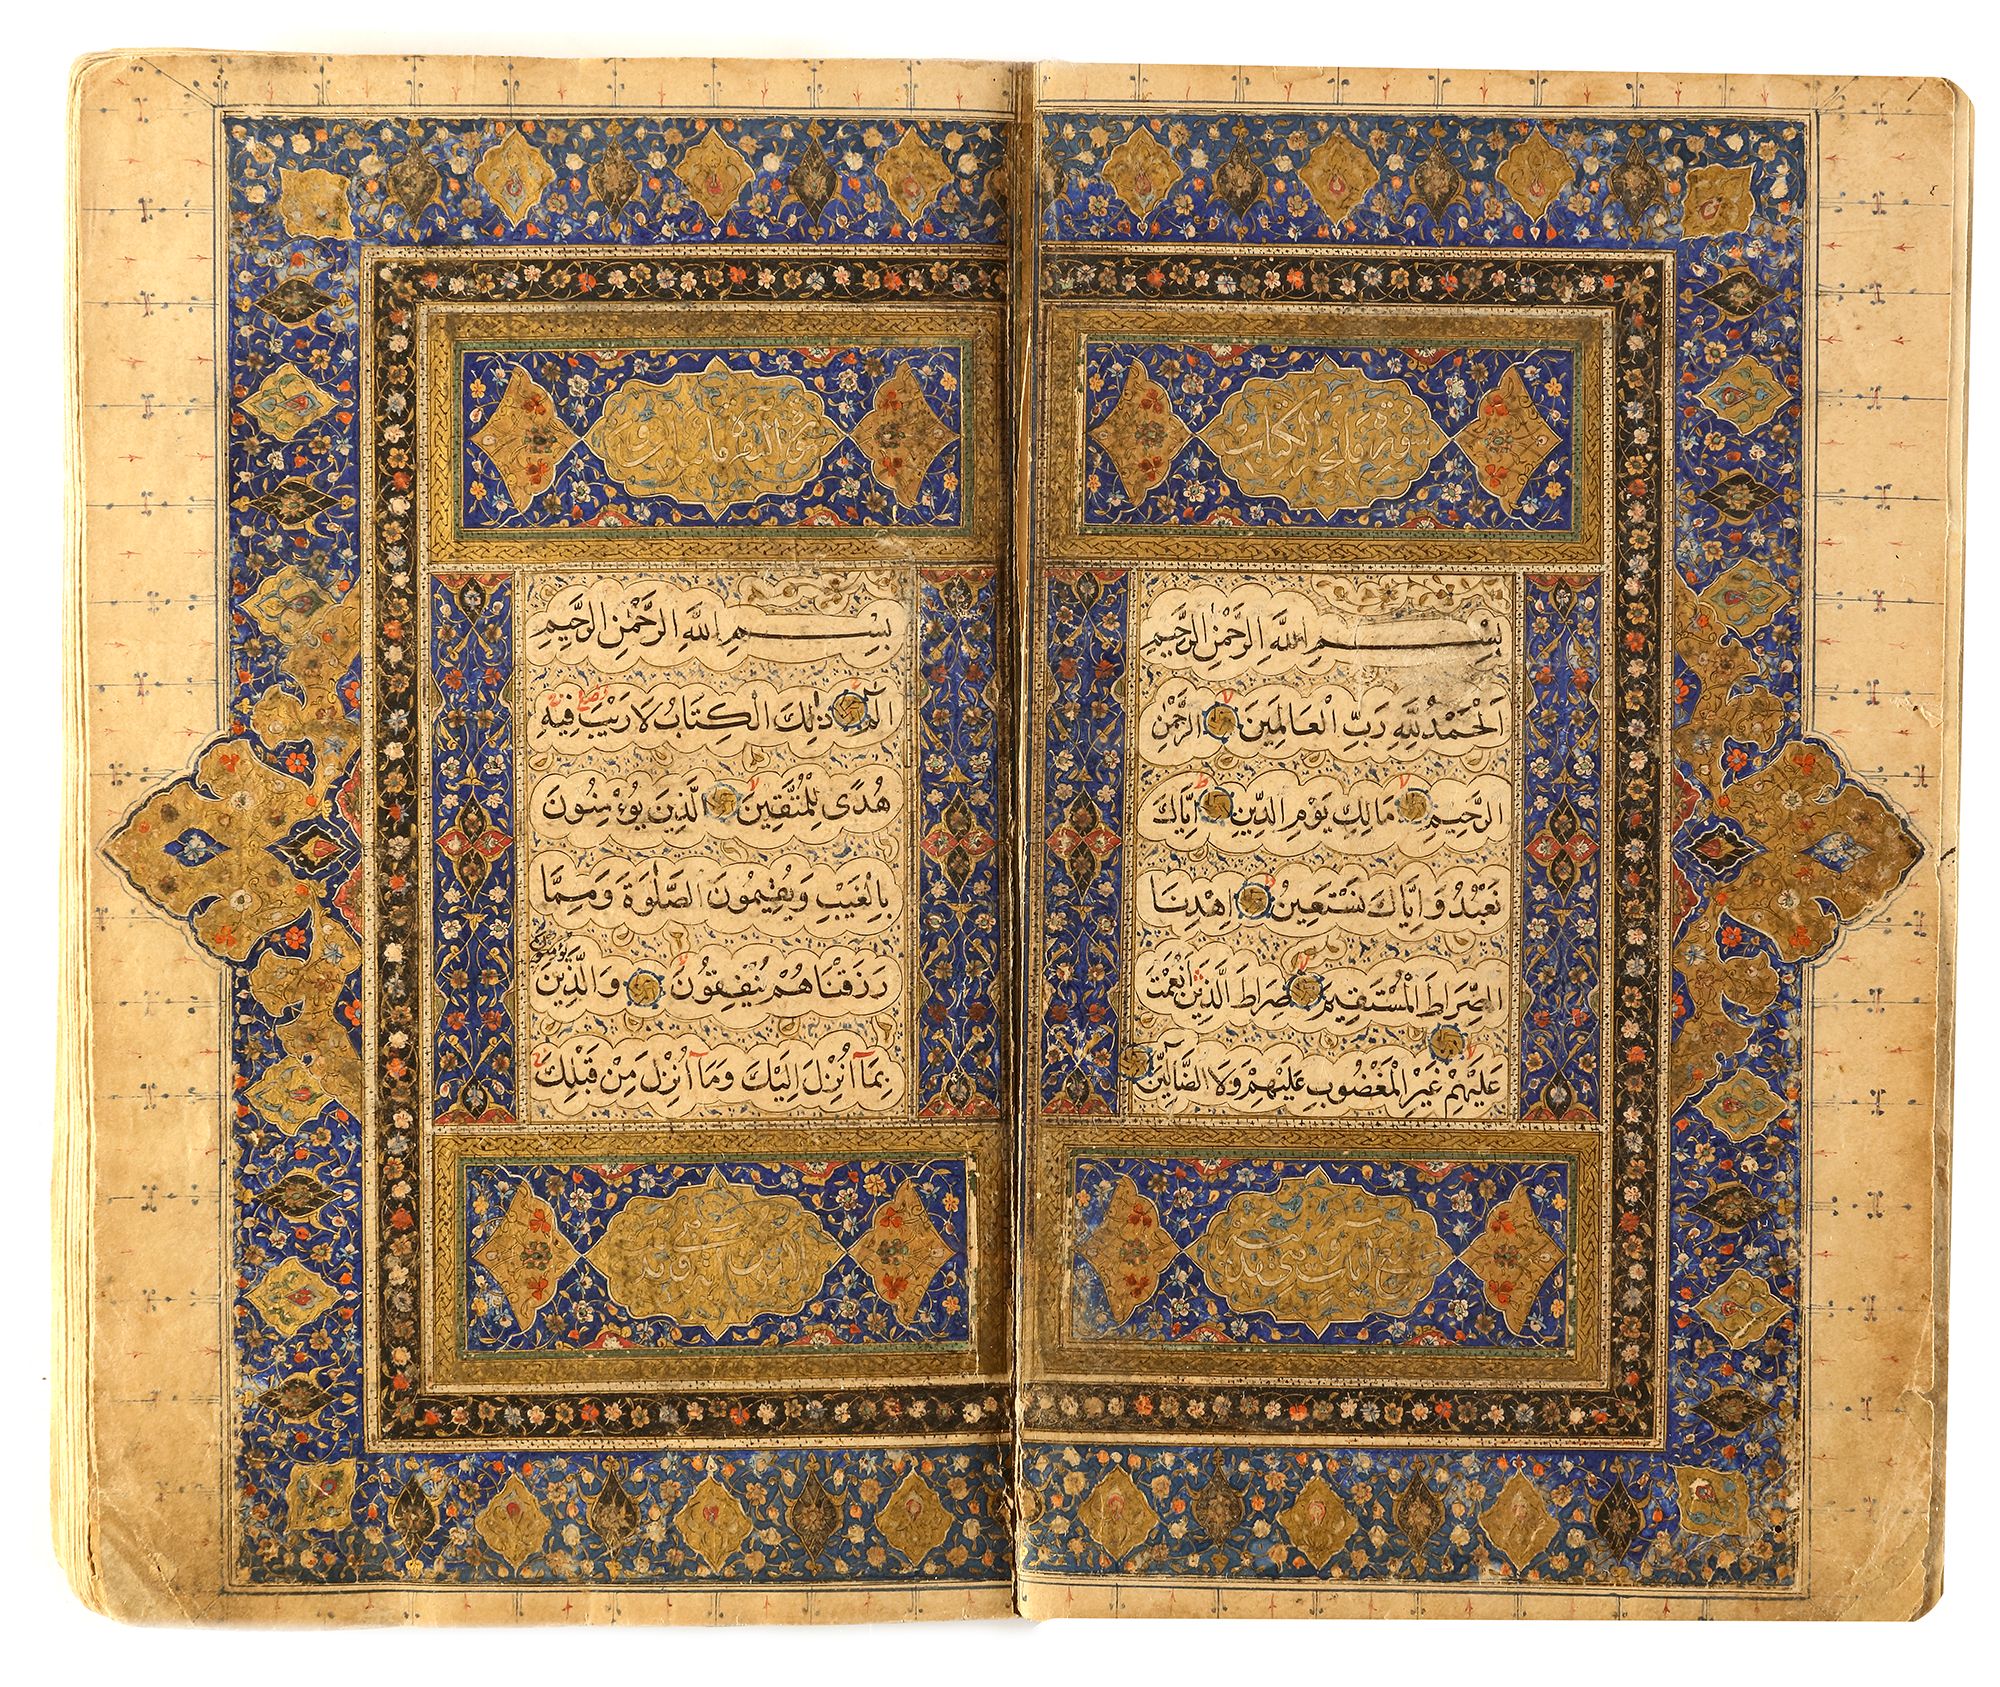 سورة فاتحة الكتاب
بِسْمِ اللَّهِ الرَّحْمٰنِ الرَّحِيمِ
اَلْحَمْدُ لِلَّهِ رَبِّ الْعَالَمِينَ الرَّحْمٰنِ
الرَّحِيمِ مَالِكِ يَوْمِ الدِّينِ اِيَّاكَ
نَعْبُدُ وَاِيَّاكَ نَسْتَعِينُ اِهْدِنَا
الصِّرَاطَ الْمُسْتَقِيمَ صِرَاطَ الَّذِينَ اَنْعَمْتَ
عَلَيْهِمْ غَيْرِ الْمَغْضُوبِ عَلَيْهِمْ وَلَا الضَّالِّينَ
سبع آيات وهي
سورة البقرة مائتان و
بِسْمِ اللَّهِ الرَّحْمٰنِ الرَّحِيمِ
الٓمٓ ذٰلِكَ الْكِتَابُ لَا رَيْبَ فِيهِ
هُدًى لِلْمُتَّقِينَ الَّذِينَ يُؤْمِنُونَ
بِالْغَيْبِ وَيُقِيمُونَ الصَّلٰوةَ وَمِمَّا
رَزَقْنَاهُمْ يُنْفِقُونَ وَالَّذِينَ
يؤمنون
بِمَآ اُنْزِلَ اِلَيْكَ وَمَآ اُنْزِلَ مِنْ قَبْلِكَ